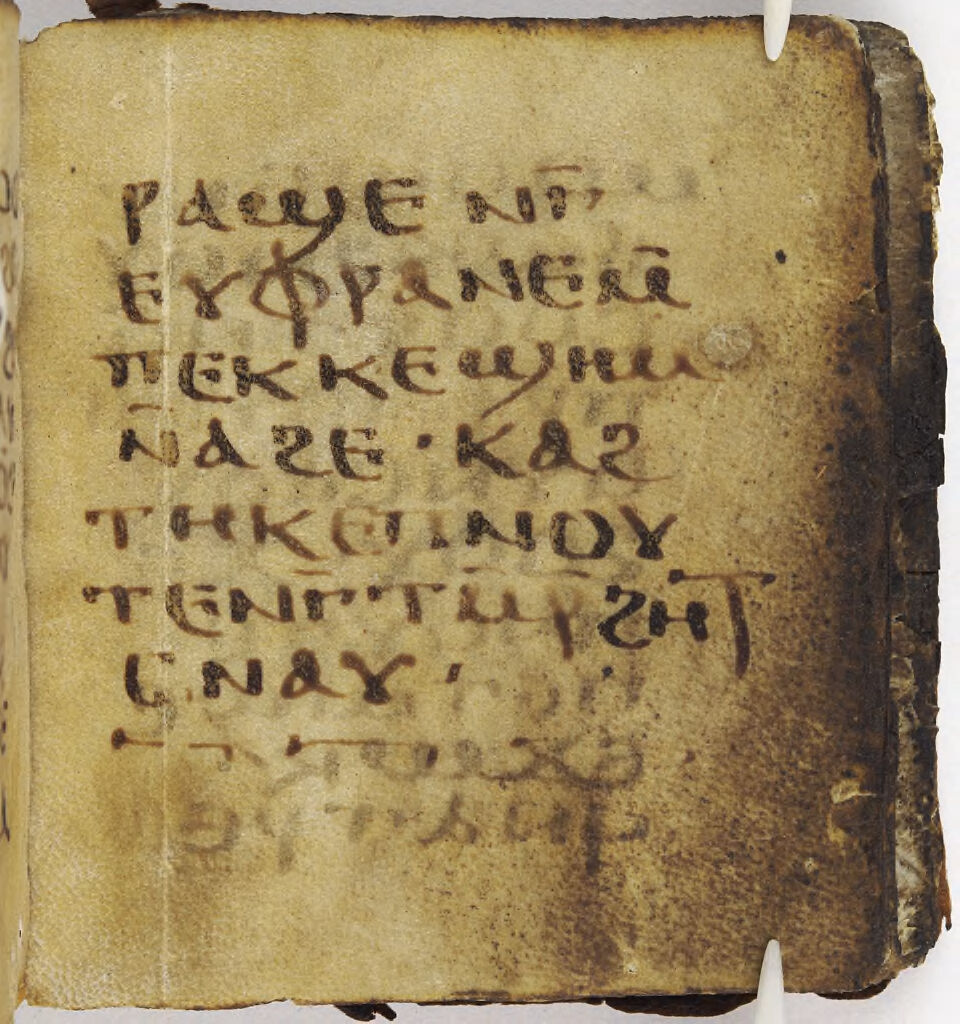 ⲣⲁϣⲉ ⲛⲅ̅
ⲉⲩⲫⲣⲁⲛⲉ ⲙ̅
ⲡⲉⲕⲕⲉϣⲏⲙ
ⲛ̅ⲁϩⲉ · ⲕⲁϩ
ⲧⲏⲕ ⲉⲡⲛⲟⲩ
ⲧⲉ ⲛⲅ̅ⲧⲙ̅ⲣ̅ϩⲏⲧ
ⲥⲛⲁⲩ ·